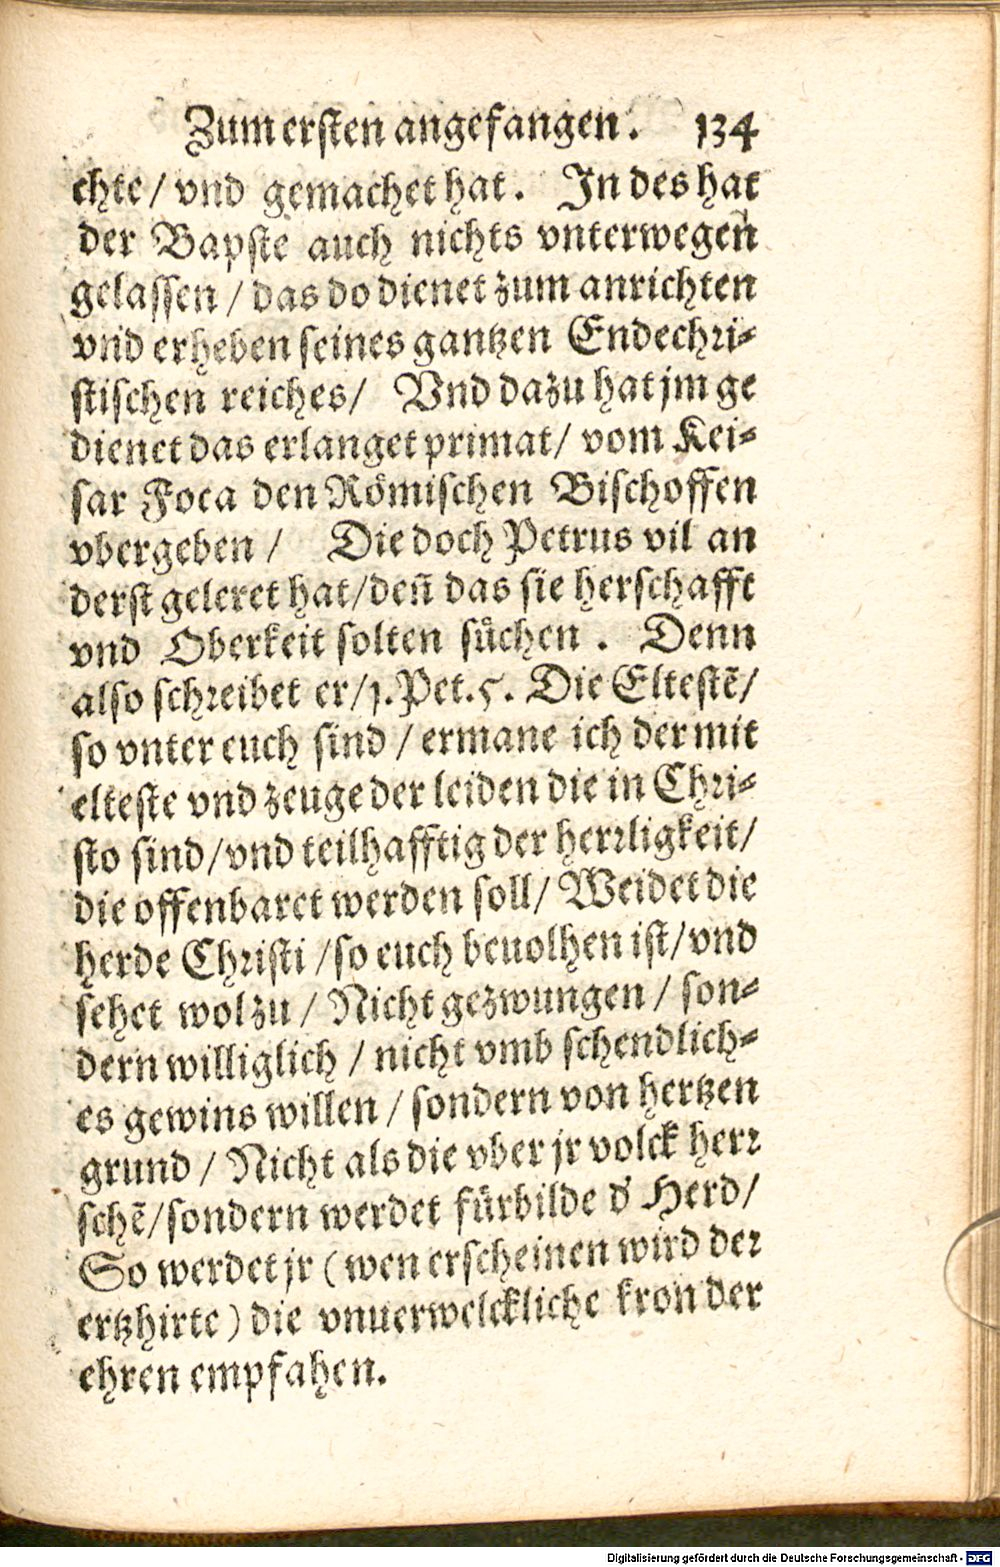 Zum ersten angefangen. 134
chte/ vnd gemachet hat. In des hat
der Bapste auch nichts vnterwegen
gelassen / das do dienet zum anrichten
vnd erheben seines gantzen Endechri-
stischen reiches/ Vnd dazu hat jm ge
dienet das erlanget primat/ vom Kei-
sar Foca den Römischen Bischoffen
vbergeben / Die doch Petrus vil an
derst geleret hat/deñ das sie herschafft
vnd Oberkeit solten sůchen. Denn
also schreibet er/1.Pet.5. Die Eltestē/
so vnter euch sind / ermane ich der mit
elteste vnd zeuge der leiden die in Chri-
sto sind/vnd teilhafftig der herrligkeit/
die offenbaret werden soll/ Weidet die
herde Christi /so euch beuolhen ist/vnd
sehet wol zu / Nicht gezwungen / son-
dern williglich / nicht vmb schendlich-
es gewins willen / sondern von hertzen
grund / Nicht als die vber jr volck herr
schē/sondern werdet fürbilde d' Herd/
So werdet jr (wen erscheinen wird der
ertzhirte) die vnuerwelckliche kron der
ehren empfahen.
Digitalisierung gefördert durch die Deutsche Forschungsgemeinschaft - DFG